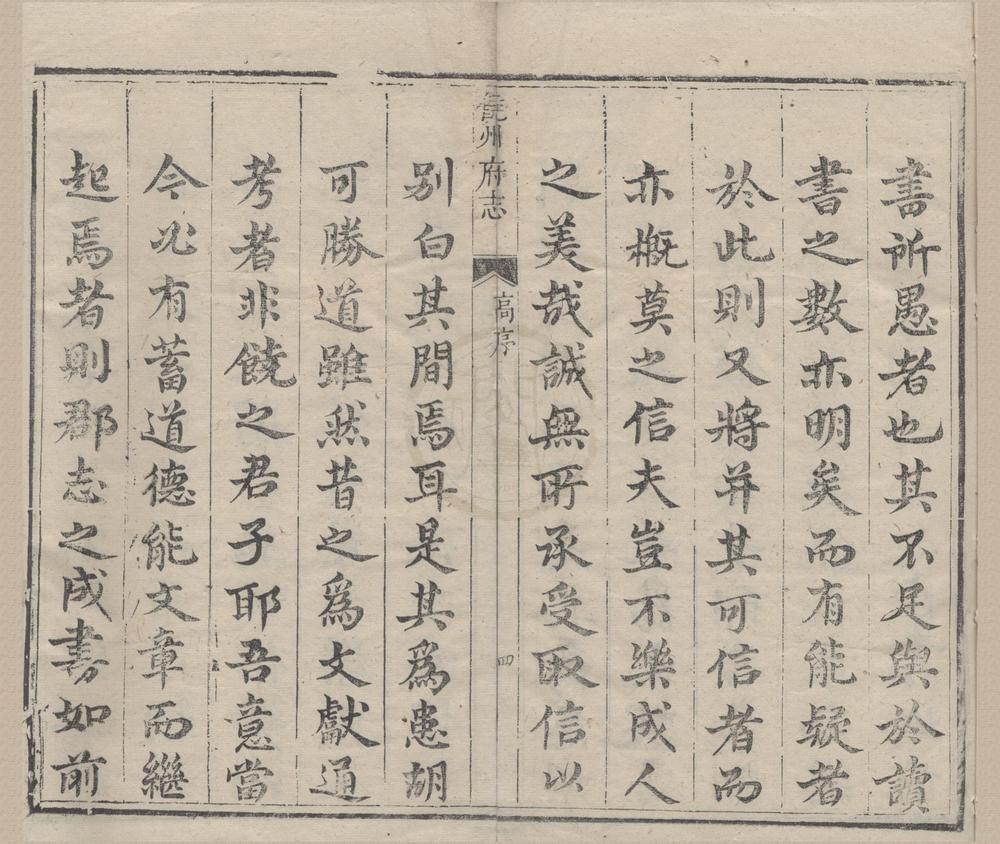 書所愚者也其不足與於讀
書之數亦明矣而有能疑者
於此則又將并其可信者而
亦概莫之信夫豈不樂成人
之美哉誠無所承受取信以
饒州府志
高序
四
别白其間焉耳是其爲患胡
可勝道雖然昔之爲文獻通
考者非饒之君子耶吾意當
今必有蓄道德能文章而繼
起焉者則郡志之成書如前